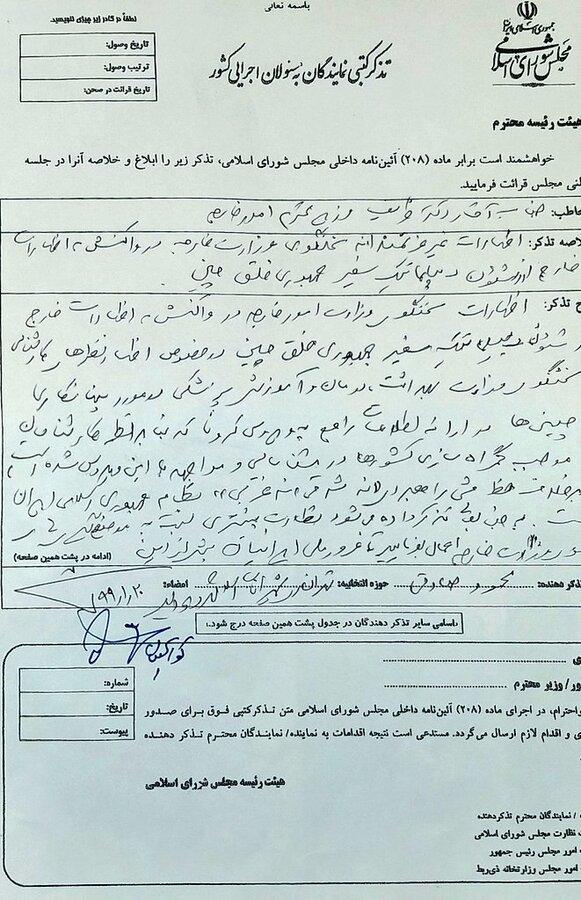 باسمه تعالی
جمهوری اسلامی ایران
مجلس شورای اسلامی
تذکر کتبی نمایندگان به مسئولان اجرایی کشور
لطفاً در کادر زیر چیزی ننویسید.
تاریخ وصول:
ترتیب وصول:
تاریخ قرائت در صحن:
هیئت رئیسه محترم
خواهشمند است برابر ماده (۲۰۸) آئین‌نامه داخلی مجلس شورای اسلامی، تذکر زیر را ابلاغ و خلاصه آنرا در جلسه
علنی مجلس قرائت فرمایید.
خاطب: جناب آقای دکتر ظریف وزیر محترم امور خارجه
لاصه تذکر: اظهارات غیر خردمندانه سخنگوی وزارت خارجه در واکنش به اظهارات
خارج از شئون دیپلماتیک سفیر جمهوری خلق چین
ح تذکر: اظهارات سخنگوی وزارت امور خارجه در واکنش به اظهارات خارج
شئون دیپلماتیک سفیر جمهوری خلق چین در خصوص اظهارنظرهای کارشناسی
سخنگوی وزارت بهداشت، درمان و آموزش پزشکی در مورد پنهانکاری
چینی‌ها در ارائه اطلاعات راجع به ویروس کرونا که بنا بر نظر کارشناسان
موجب گمراه سازی کشورها در شناسایی و مواجهه با این ویروس شده است
خلاف خط مشی راهبردی «نه شرقی نه غربی» نظام جمهوری اسلامی ایران
به جنابعالی تذکر داده می‌شود نظارت بیشتری نسبت به
وزارت خارجه اعمال بفرمایید تا غرور ملی ایرانیان بیش از این
(ادامه در پشت همین صفحه)
تذکر دهنده: محمود صادقی حوزه انتخابیه: تهران، ری، شمیرانات، اسلامشهر و پردیس امضاء:
۹۹/۱/۲۰
اسامی سایر تذکر دهندگان در جدول پشت همین صفحه درج شود.
شماره:
تاریخ:
پیوست:
ور/ وزیر محترم
احترام، در اجرای ماده (۲۰۸) آئین‌نامه داخلی مجلس شورای اسلامی متن تذکرکتبی فوق برای صدور
ی و اقدام لازم ارسال می‌گردد. مستدعی است نتیجه اقدامات به نماینده/ نمایندگان محترم تذکر دهنده
هیئت رئیسه مجلس شورای اسلامی
/ نمایندگان محترم تذکردهنده
نظارت مجلس شورای اسلامی
امور مجلس رئیس جمهور
امور مجلس وزارتخانه ذی‌ربط